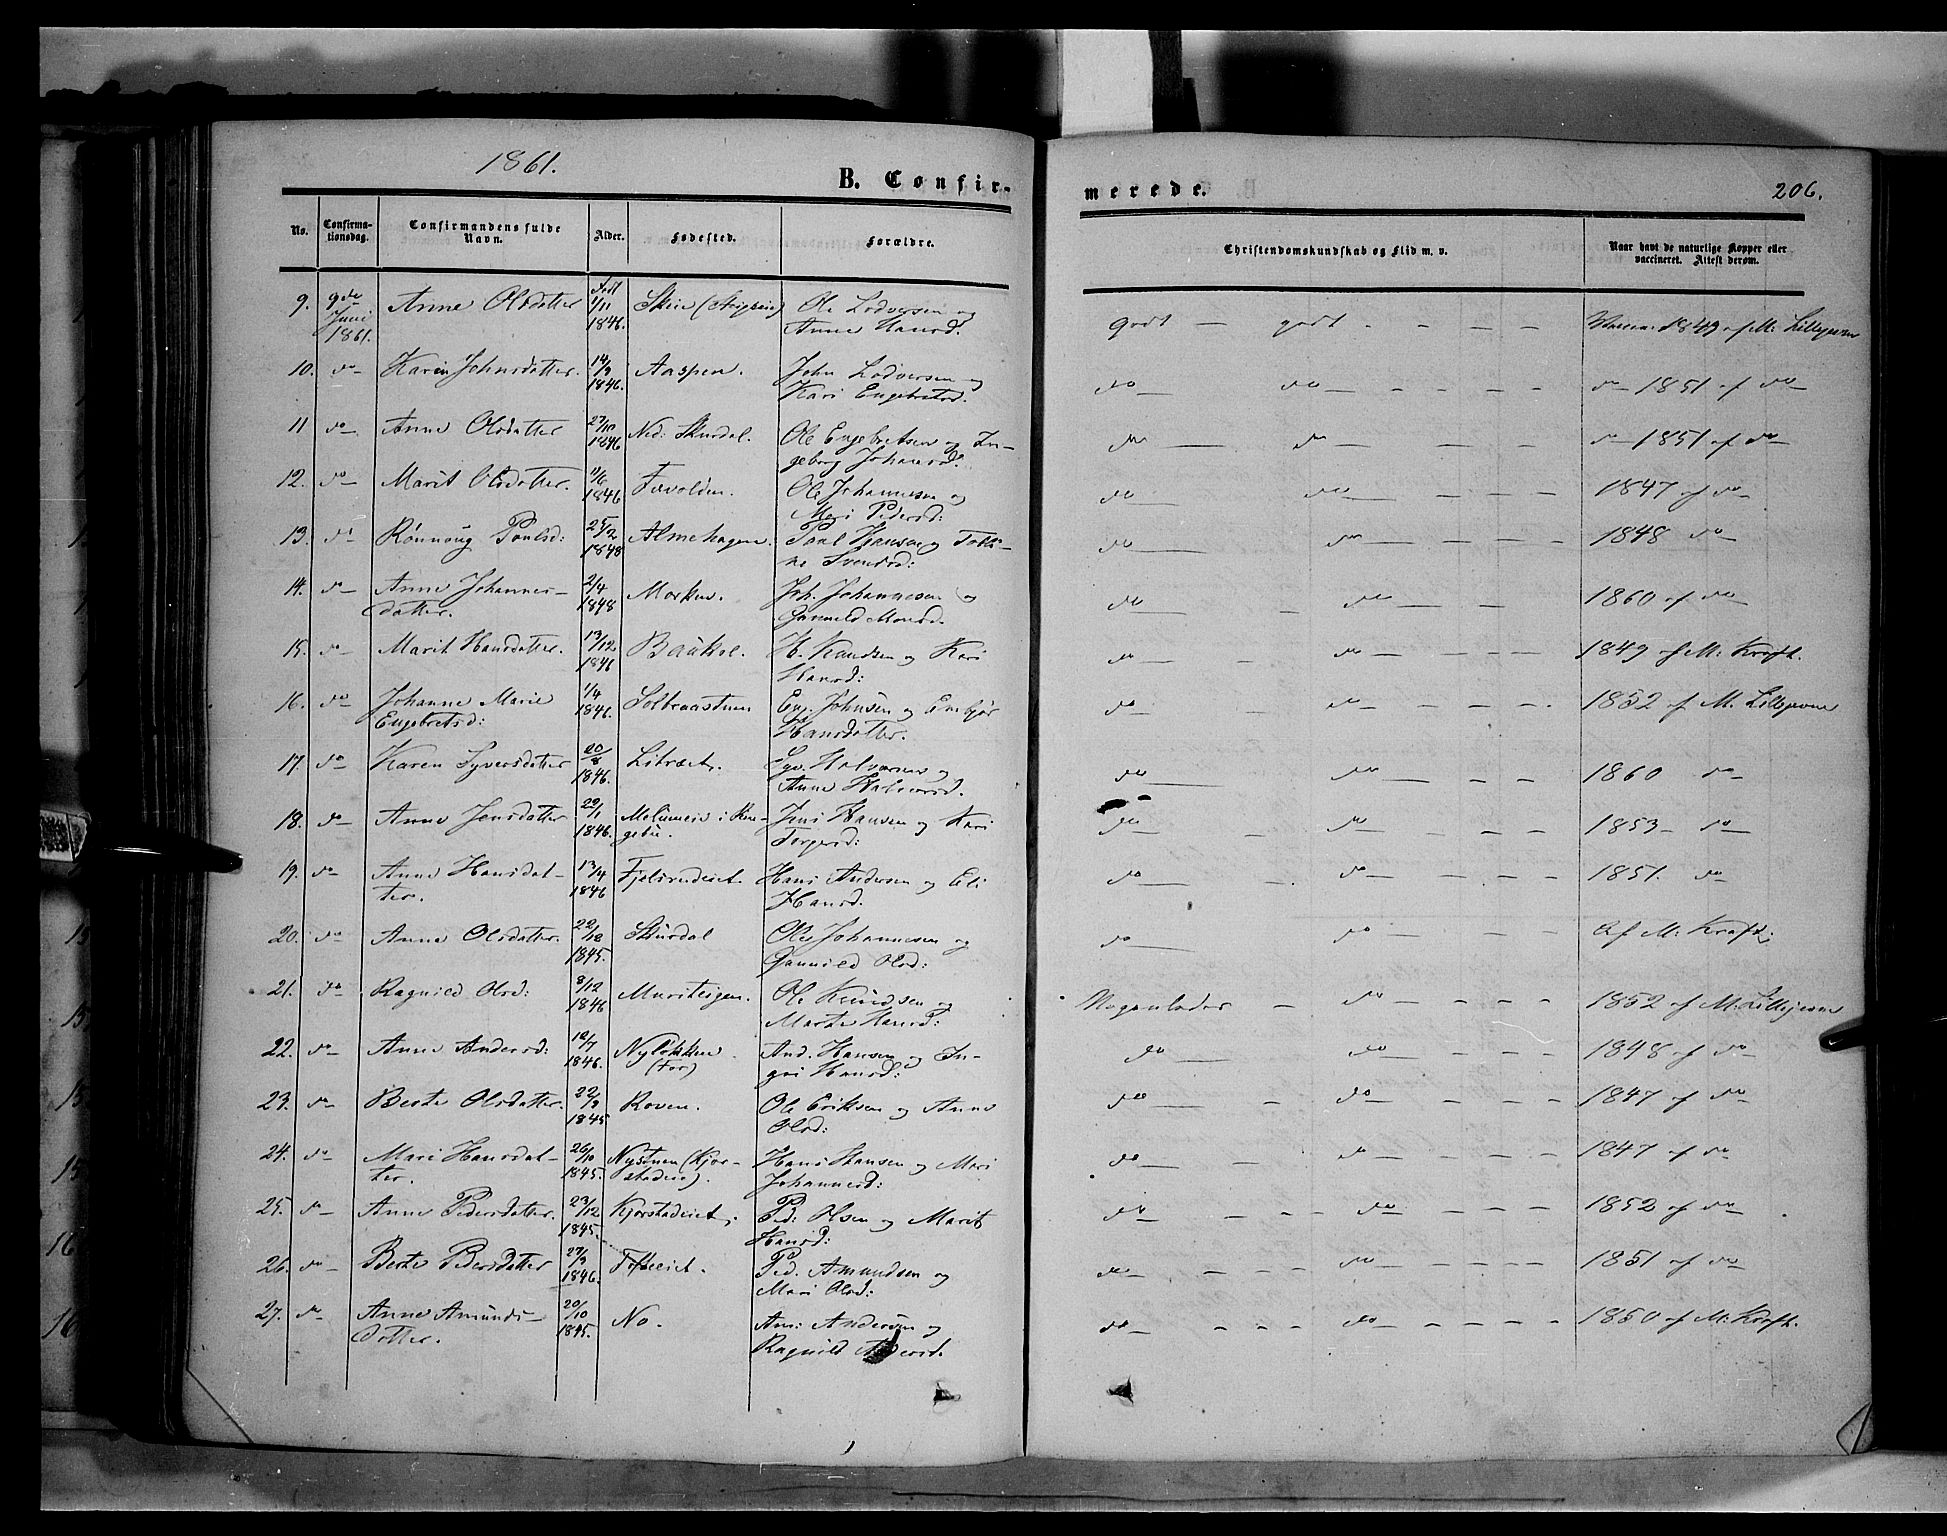 1861.
B. Confir-
merede.
206.
No.
Confirma-
tionsdag.
Confirmandens fulde
Navn.
Alder.
Fødested.
Forældre.
Christendomskundskab og Flid m. v.
Naar havt de naturlige Kopper eller
vaccineret. Attest derom.
9. 9de Juni 1861. Anne Olsdatter Født 1/11 1846. Skeie Ole Lodversen og
Anne Hansd. godt — godt - - - - 1849 af M. Lillejevne
10. do Karin Johnsdatter. 14/9 1846. Aaspen. John Lodversen og
Kari Engebretsd. do do — - - - - do 1851 af do
11 do Anne Olsdatter 27/10 1846 Ned: Skurdal. Ole Engebretsen og In-
geborg Johansd. do do — - - - do 1851 af do
12. do Marit Olsdatter. 11/6 1846 Ole Johannesen og
Mari Pedersd: do do — - - - 1847 af do
13. do Rønnoug Poulsd: 25/2 1848 Almehagen. Poul Hansen og
Svendsd: do do — - - - 1848 do
14. do Anne Johannes-
datter. 2/4 1848 Morken. Joh. Johannesen og
do do — - - 1860 af do
15. do Marit Hansdatter. 13/12 1846 H. Knudsen og Kari
Hansd: do - do — - - - 1849 af M: Kraft.
16. do Johanne Marie
Engebretsd: 1/4 1846. Solbraastuen Eng. Johnsen og Embjør
Hansdatter. do do - - - - 1852 af M. Lillejevne
17. do Karen Syversdatter 20/8 1846. Syv. Halvorsen og
Anne Halvorsd. do do — - - 1860 do
18. do Anne Jensdatter 29/1 1846. Jens Hansen og Kari
Torgersd: do do — - - - 1853 - do
19. do Anne Hansdat-
ter. 13/4 1846 Hans Andersen og Eli
Hansd. do - do - - - - 1851. do
20. do Anne Olsdatter. 22/12 1845. Skurdal Ole Johannesen og
Gunnild Olsd: do do - - - Af M: Kraft.
21. do Ragnild Olsd: 8/12 1846 Ole Knudsen og
Marte Hansd: Nogenledes - do — - - - 1852 af M: Lillejevne
22. do Anne Andersd: 12/7 1846. Nyløkken.
(For) And. Hansen og In-
gri Hansd: do do — - - - 1848 af do
23. do Berte Olsdatter. 22/9 1845 Roven. Ole Eriksen og Anne
Olsd: do - do - - - - 1847 af do
24. do Mari Hansdat-
ter. 26/10 1845. Nystuen (Kjør-
stadeie). Hans Hansen og Mari
Johannesd: do do — - - - 1847 af do
25. do Anne Pedersdatter. 23/12 1845. Kjørstadeiet. Ped: Olsen og Marit
Hansd: do - - - do - - - - 1852 af do
26. do Berte Pedersdatter 27/9 1846. Ped. Amundsen og
Mari Olsd: do - - - do - - - - 1851 af do
27. do Anne Amunds-
datter. 20/10 1845. No. Am: Andersen og
Ragnild Andersd. do - - - do - - - - 1850 af M: Kraft.